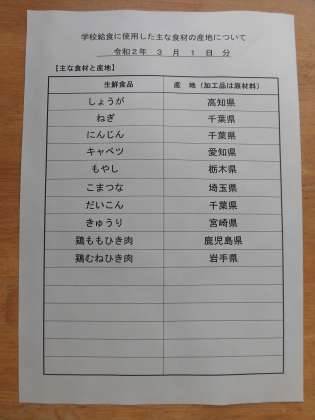 学校給食に使用した主な食材の産地について
令和２年 ３ 月 １ 日 分
【主な食材と産地】
生鮮食品 産 地（加工品は原材料）
しょうが 高知県
ねぎ 千葉県
にんじん 千葉県
キャベツ 愛知県
もやし 栃木県
こまつな 埼玉県
だいこん 千葉県
きゅうり 宮崎県
鶏ももひき肉 鹿児島県
鶏むねひき肉 岩手県